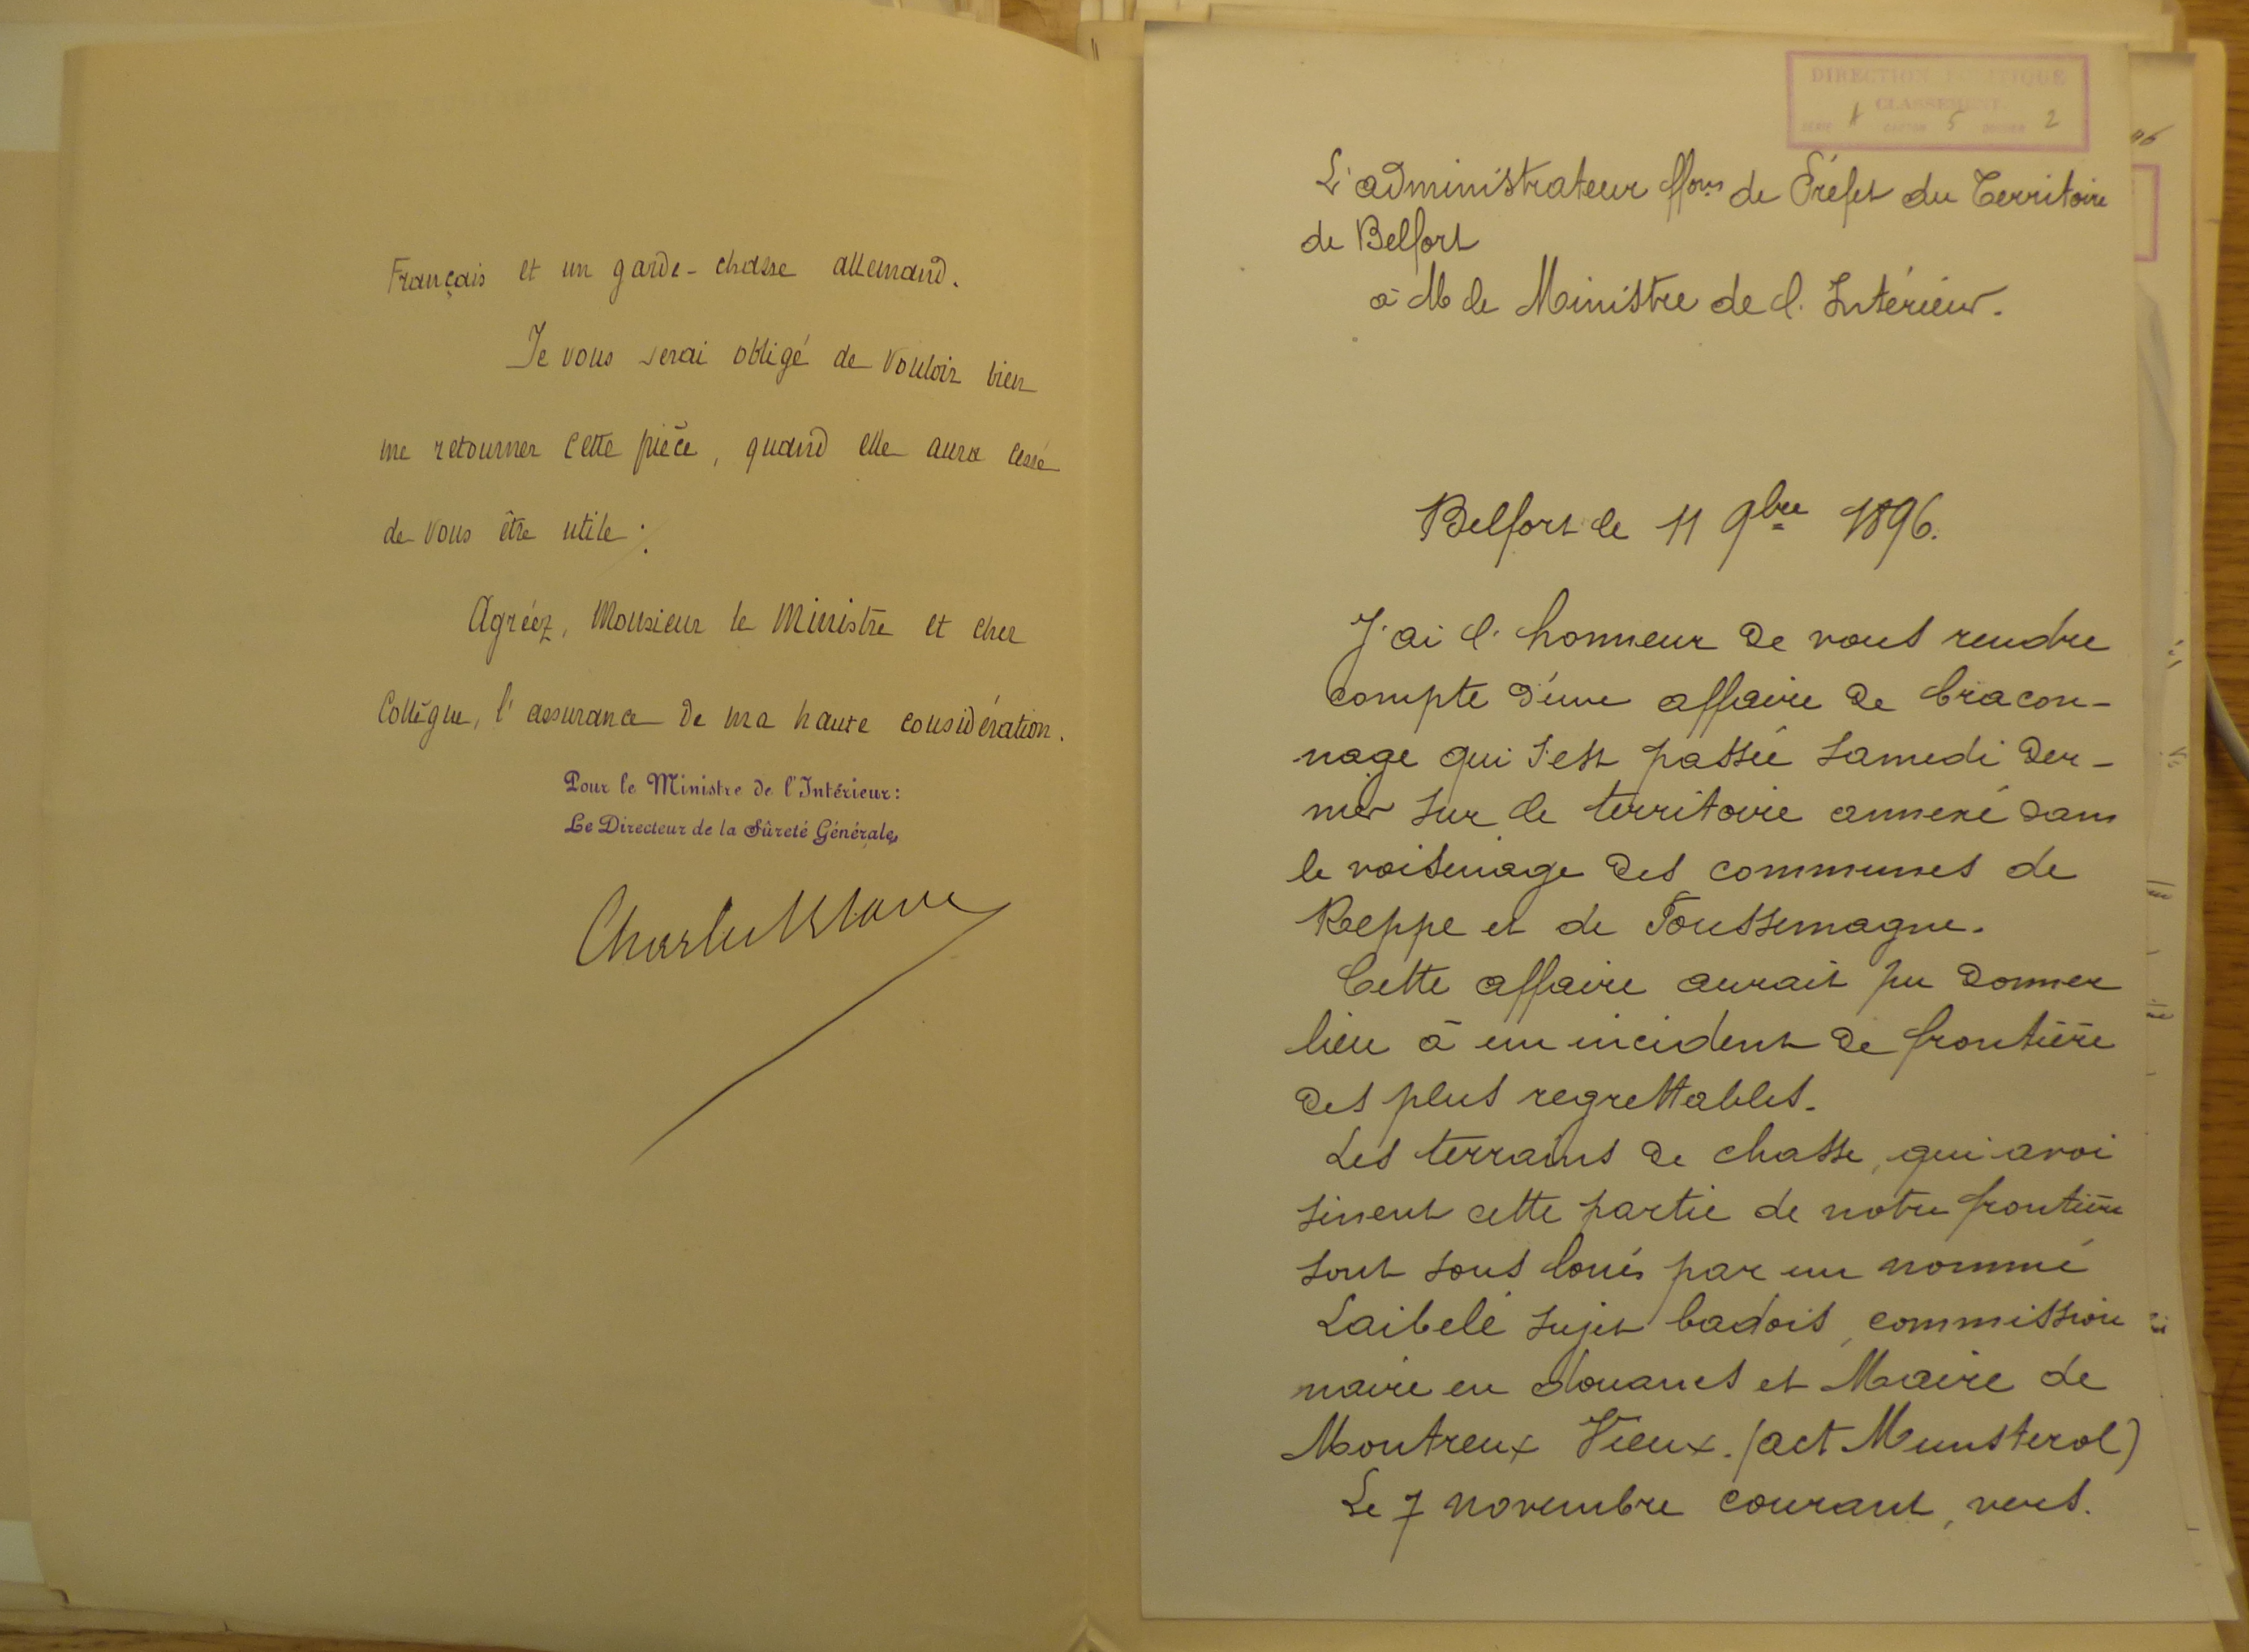 Français et un garde-chasse allemand.
Je vous serai obligé de vouloir bien
me retourner cette pièce, quand elle aura cessé
de vous être utile.
Agréez, Monsieur le Ministre et cher
Collègue, l'assurance de ma haute considération.
Pour le Ministre de l'Intérieur:
Le Directeur de la Sûreté Générale,
DIRECTION POLITIQUE
CLASSEMENT
SÉRIE A CARTON 5 DOSSIER 2
L'administrateur ffons de Préfet du Territoire
de Belfort
à M le Ministre de l'Intérieur.
Belfort le 11 9bre 1896.
J'ai l'honneur de vous rendre
compte d'une affaire de bracon-
nage qui s'est passée samedi der-
nier sur le territoire annexé dans
le voisinage des communes de
Reppe et de Foussemagne.
Cette affaire aurait pu donner
lieu à un incident de frontière
des plus regrettables.
Les terrains de chasse, qui avoi
sinent cette partie de notre frontière
sont sous loués par un nommé
Laibelé sujet badois, commission
naire en douanes et Maire de
Montreux Vieux. (act Munsterol)
Le 7 novembre courant, vers.